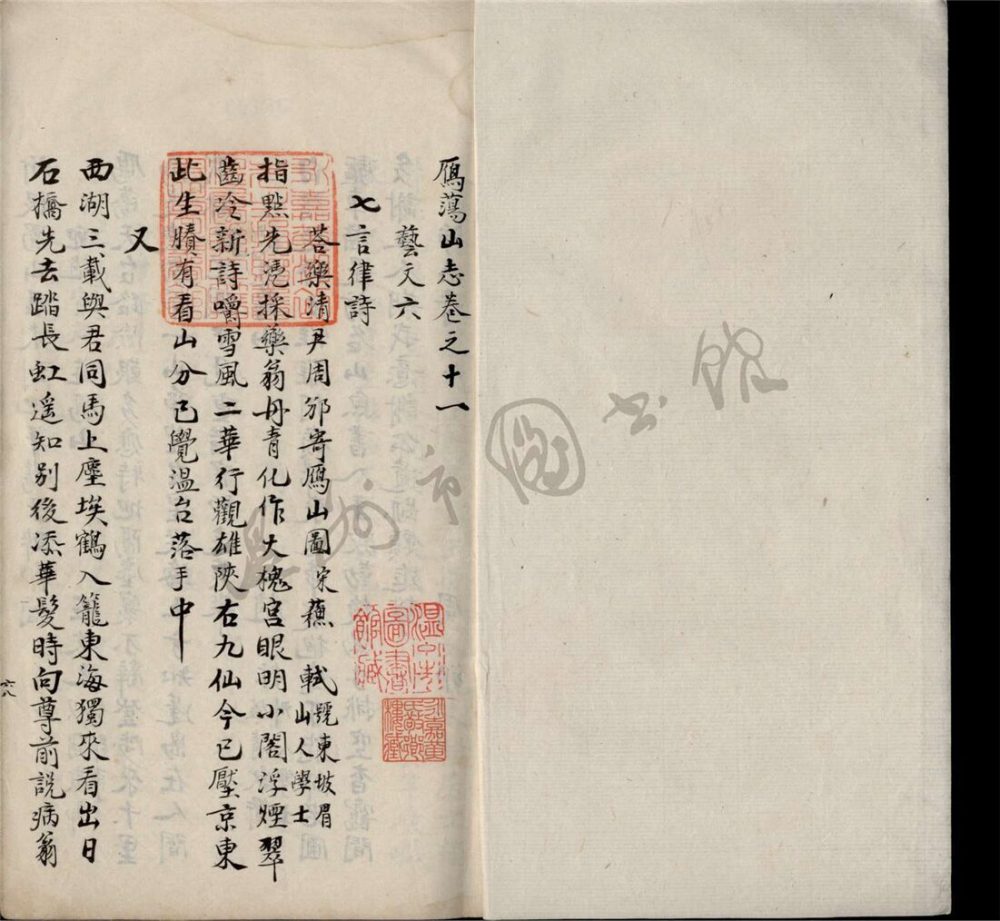 鴈蕩山志卷之十一
藝文六
七言律詩
荅樂清尹周邠寄鴈山圖宋蘓 軾號東坡眉山人學士
指點先凴採藥翁丹青化作大槐宮眼明小閣浮煙翠
齒冷新詩嚼雪風二華行觀雄陝右九仙今已壓京東
此生賸有看山分已覺溫台落手中
又
西湖三載與君同馬上塵埃鶴入籠東海獨來看出日
石橋先去踏長虹遥知别後添華髮時向尊前說病翁
温州市圖書館藏
温州市图书馆